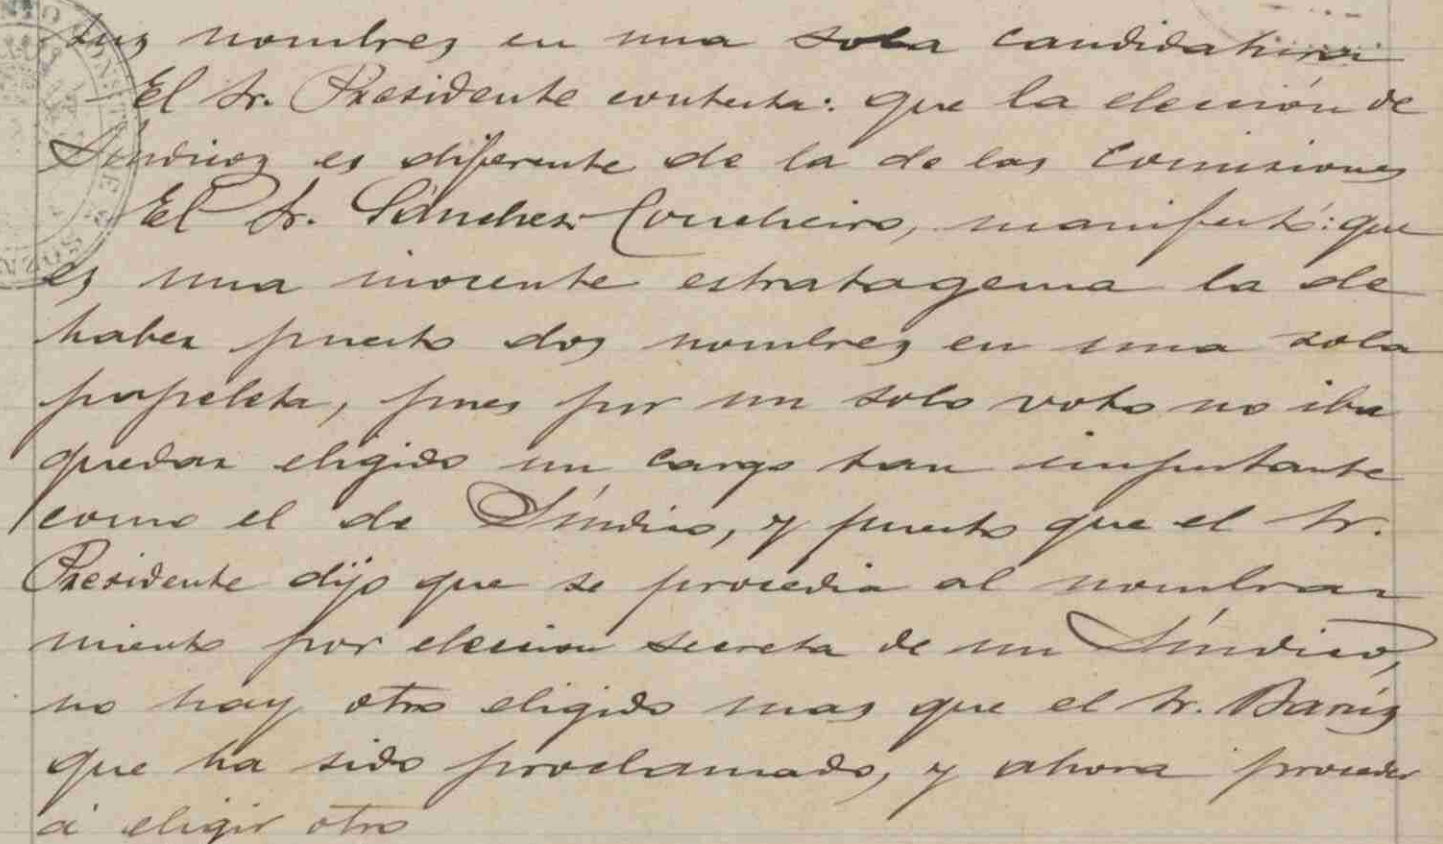 sus nombres en una sola candidatura
El Sr. Presidente contesta: que la elección de
Síndicos es diferente de la de las Comisiones
El Sr. Sánchez Concheiro, manifestó: que
es una inocente estratagema la de
haber puesto dos nombres en una sola
papeleta, pues por un solo voto no iba
quedar eligido un cargo tan importante
como el de Síndico, y puesto que el Sr.
Presidente dijo que se procedia al nombra
miento por eleccion secreta de un Síndico,
no hay otro eligido mas que el Sr.
que ha sido proclamado, y ahora proceder
á eligir otro